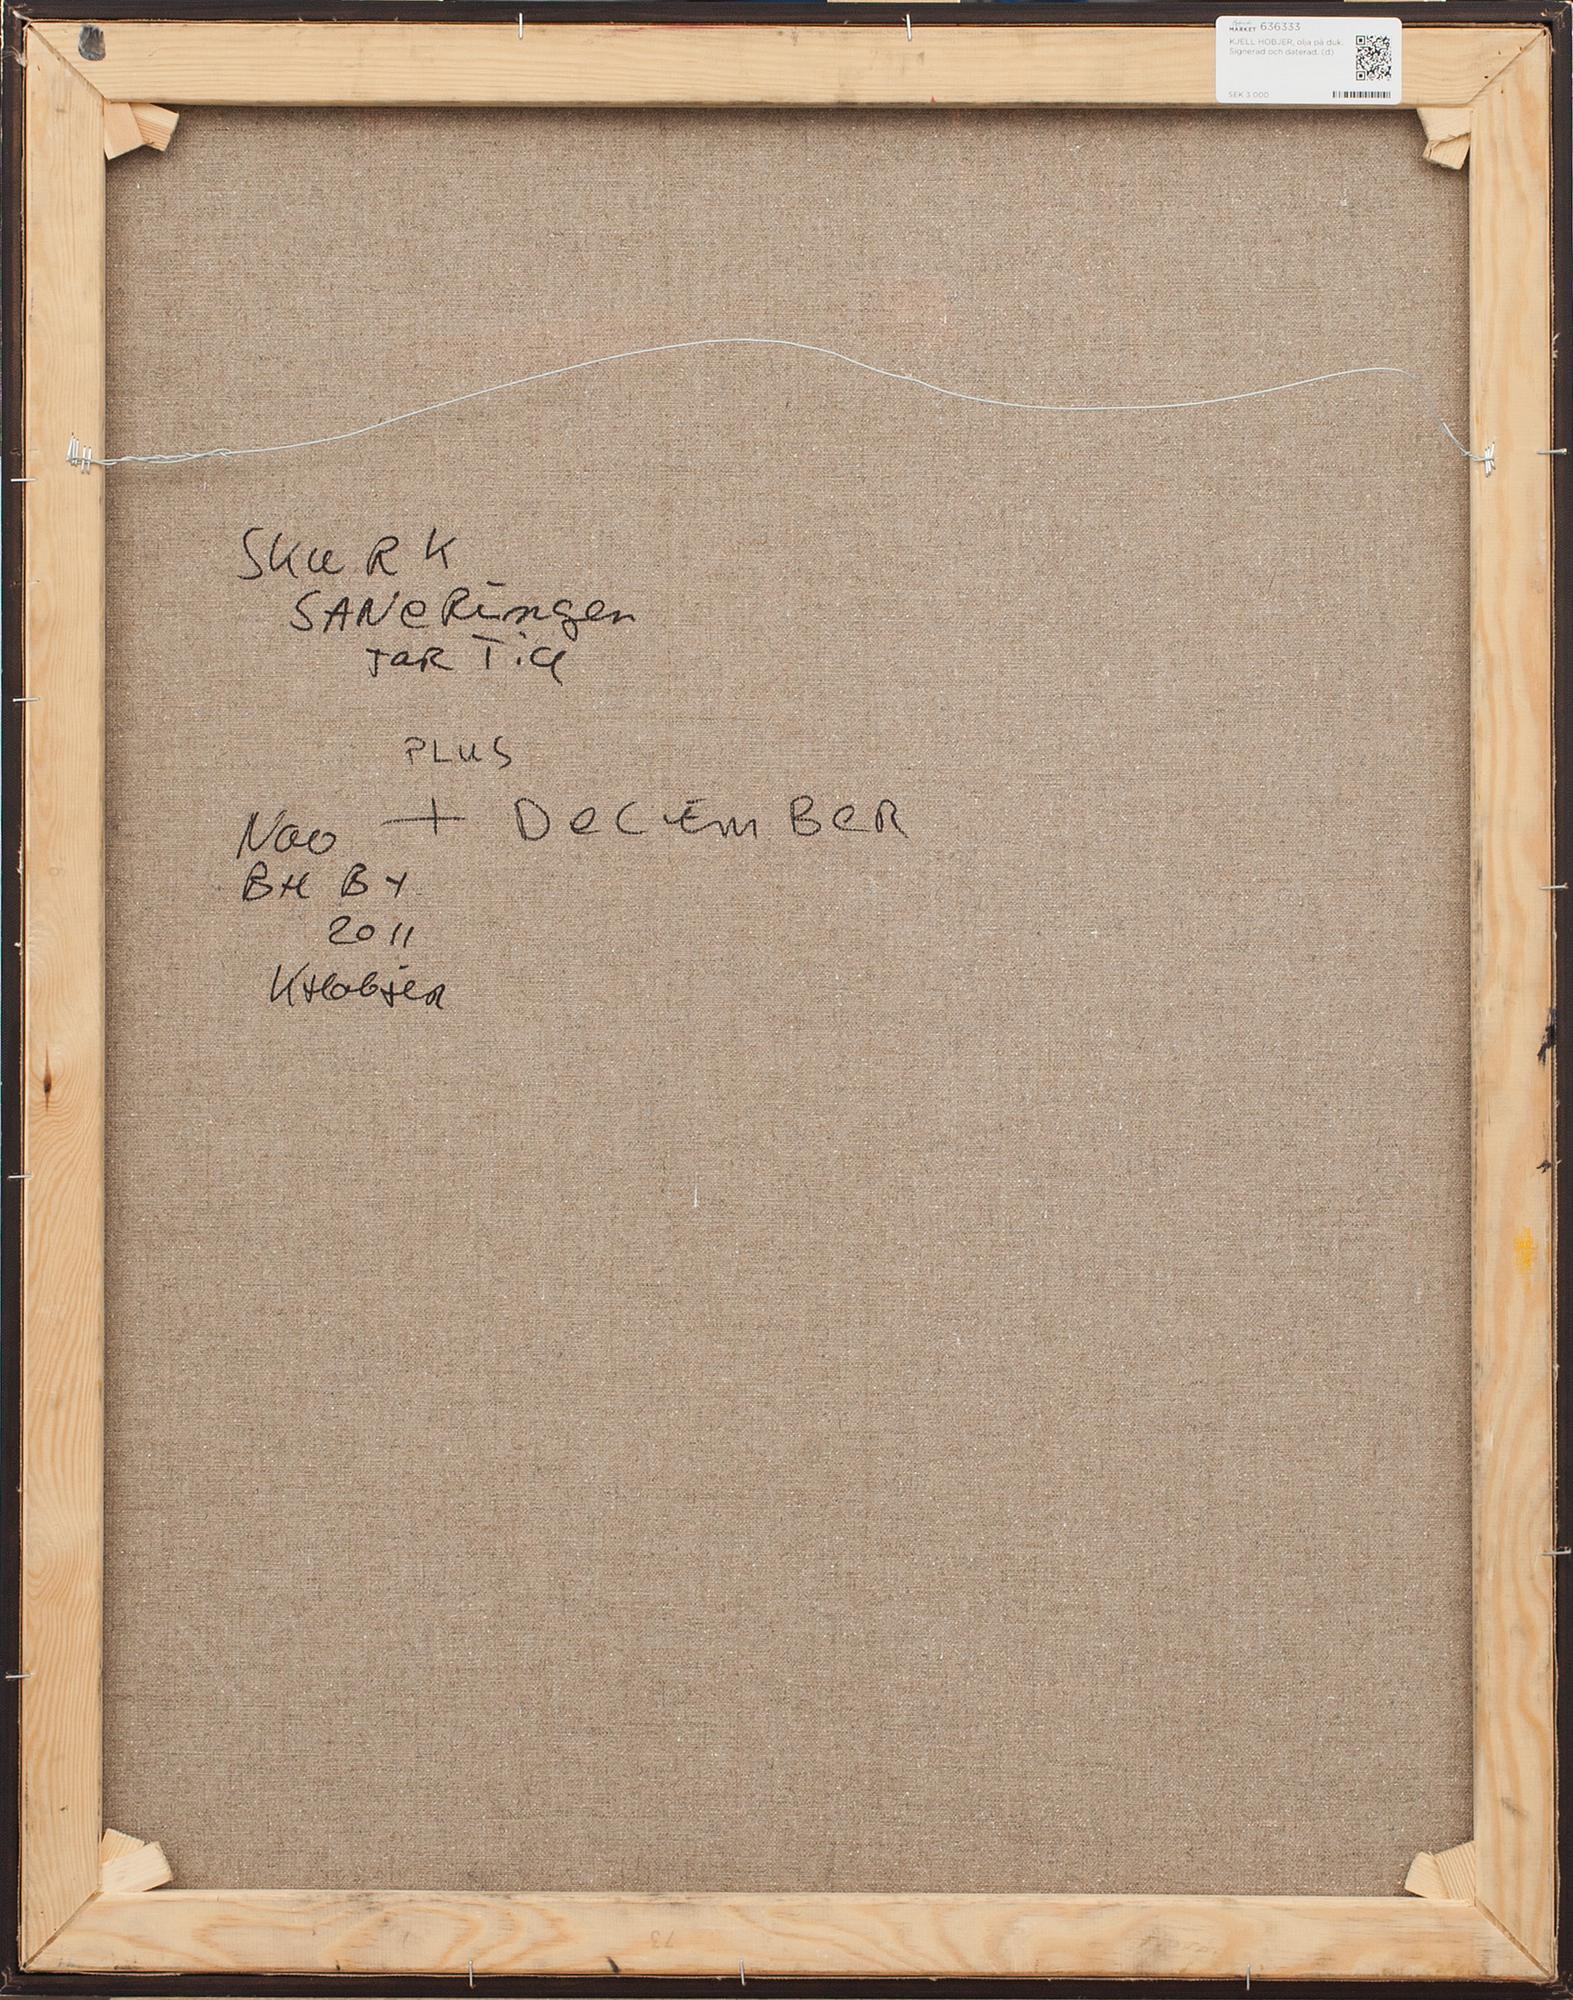 MARKET 636333
KJELL HOBJER, olja på duk.
Signerad och daterad. (d)
SEK 3 000
SKURK
SANERingen
TAR Tid
PLUS
+ DECEMBER
Nov
BH BY
2011
KHobjer
73